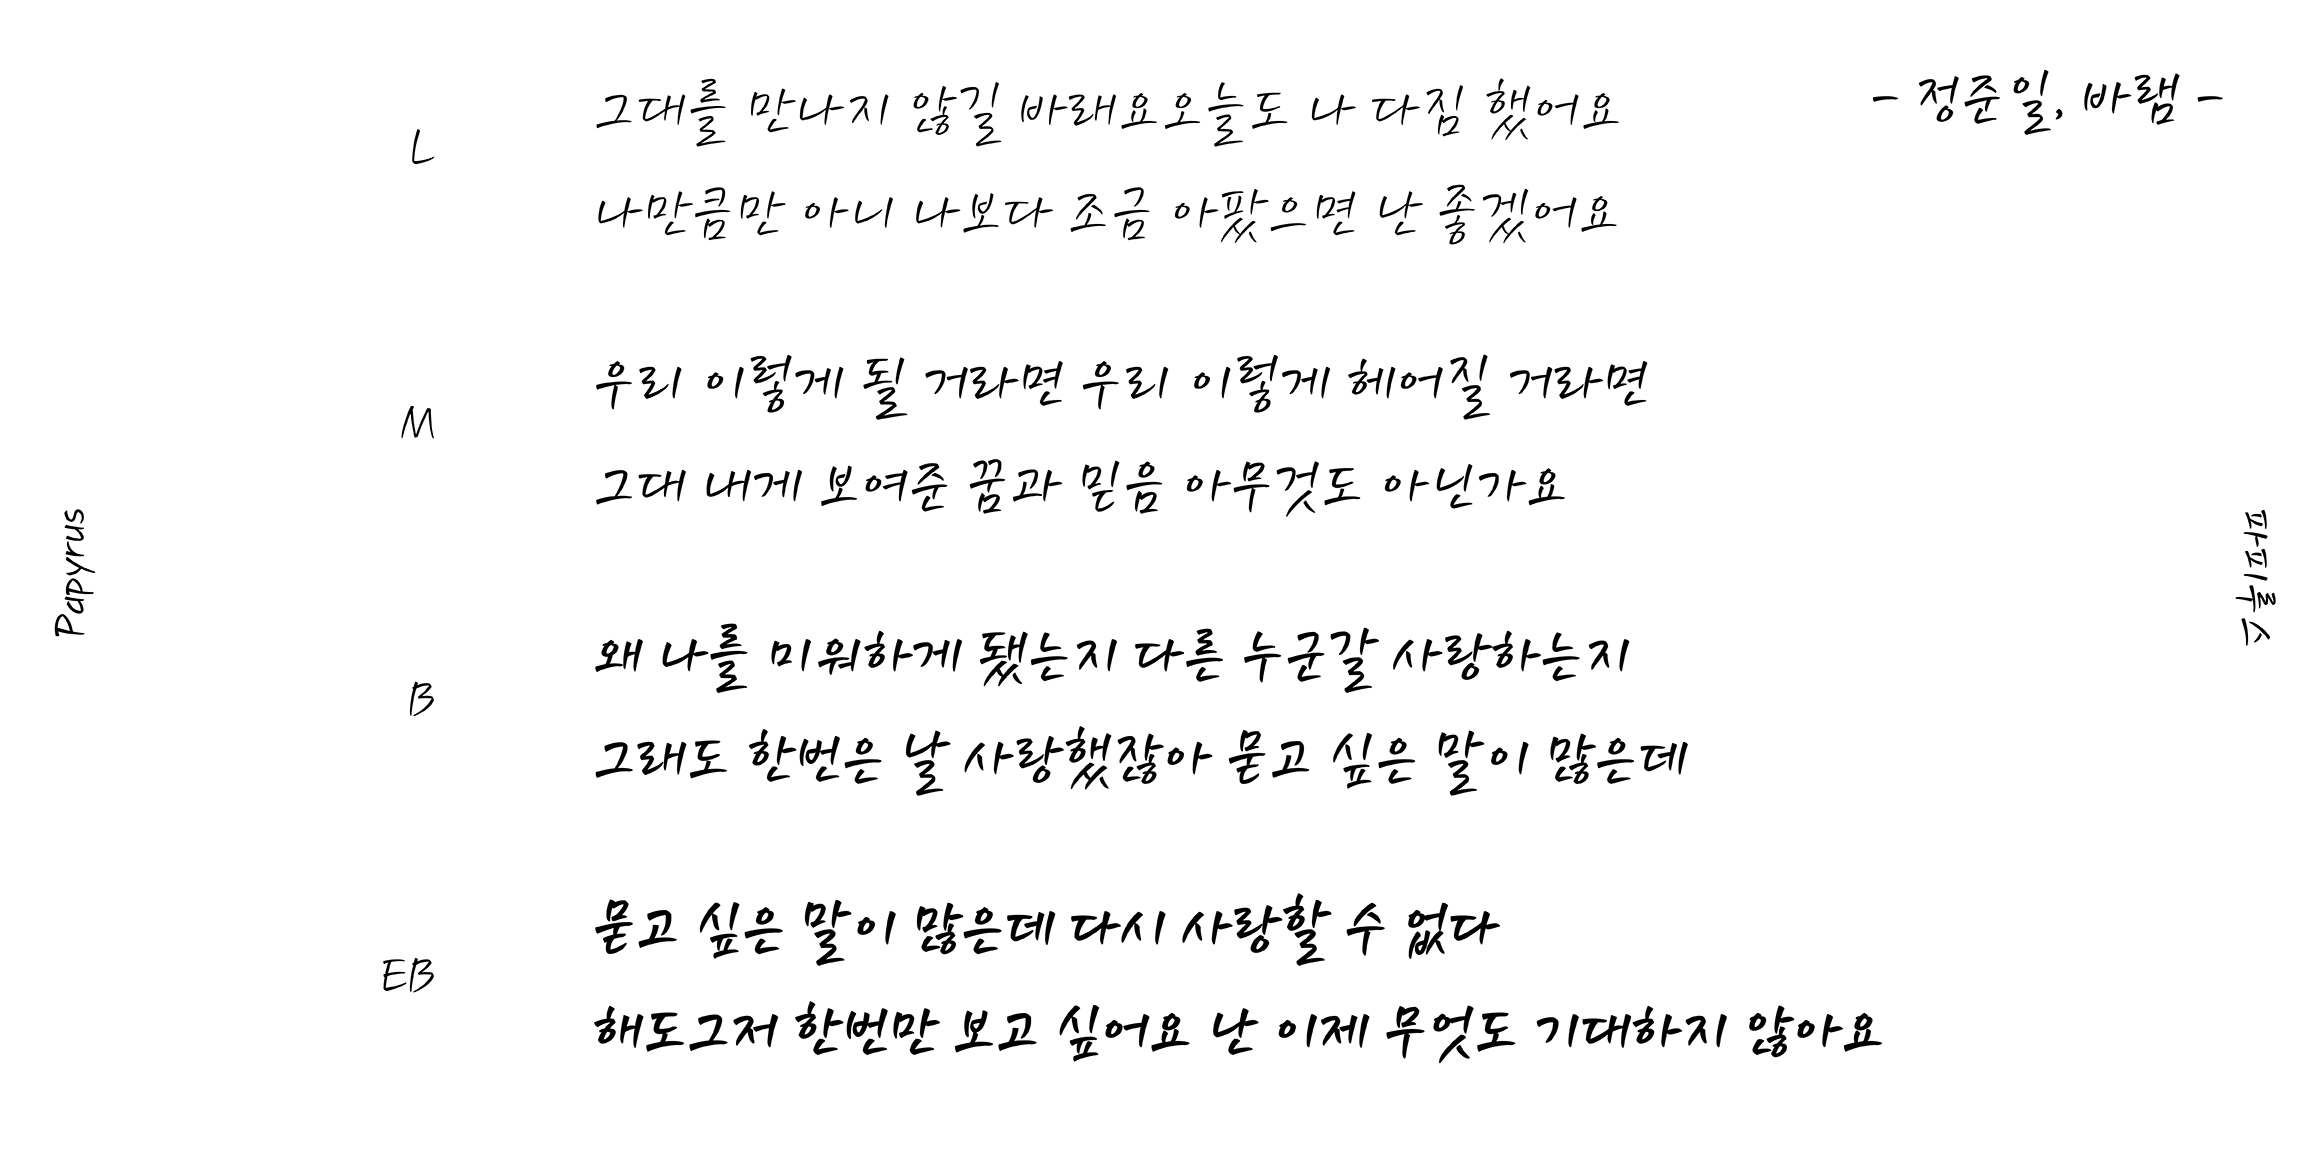 그대를 만나지 않길 바래요오늘도 나 다짐 했어요
- 정준일, 바램 -
L
나만큼만 아니 나보다 조금 아팠으면 난 좋겠어요
우리 이렇게 될 거라면 우리 이렇게 헤어질 거라면
M
그대 내게 보여준 꿈과 믿음 아무것도 아닌가요
Papyrus
파피루스
왜 나를 미워하게 됐는지 다른 누군갈 사랑하는지
B
그래도 한번은 날 사랑했잖아 묻고 싶은 말이 많은데
묻고 싶은 말이 많은데 다시 사랑할 수 없다
EB
해도그저 한번만 보고 싶어요 난 이제 무엇도 기대하지 않아요